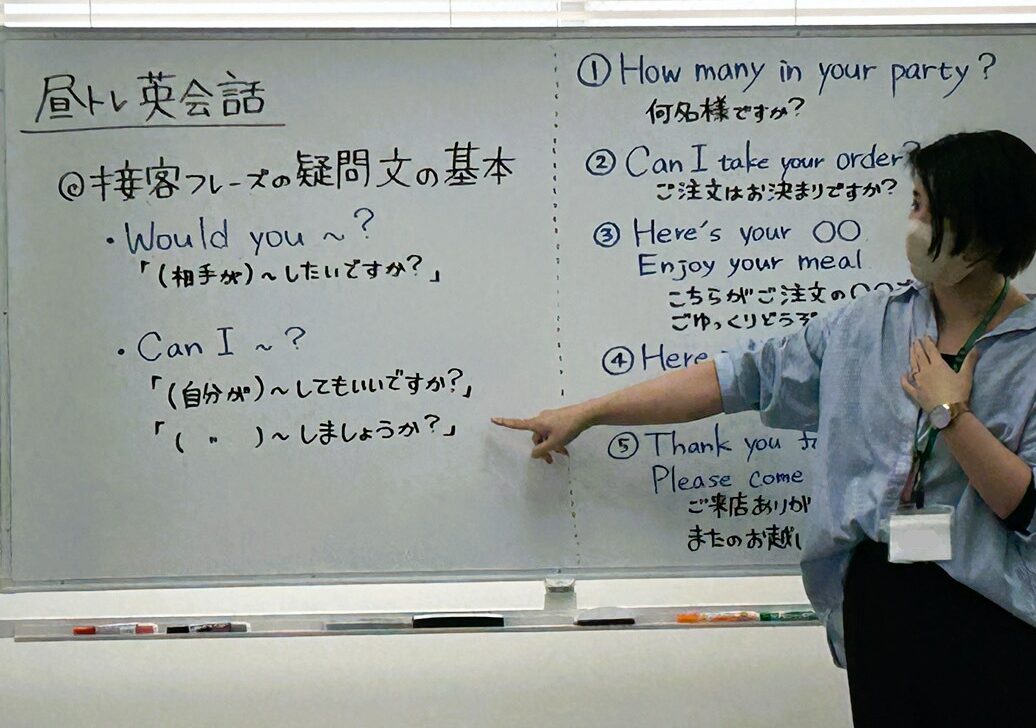 昼トレ英会話
◎接客フレーズの疑問文の基本
・Would you ~?
「(相手が)~したいですか?」
・Can I ~?
「(自分が)~してもいいですか?」
「( 〃 )~しましょうか?」
① How many in your party?
何名様ですか?
② Can I take your order?
ご注文はお決まりですか?
③ Here's your 〇〇
Enjoy your meal
こちらがご注文の〇〇
ごゆっくりどうぞ
④ Here
⑤ Thank you
Please come
ご来店ありが
またのお越し